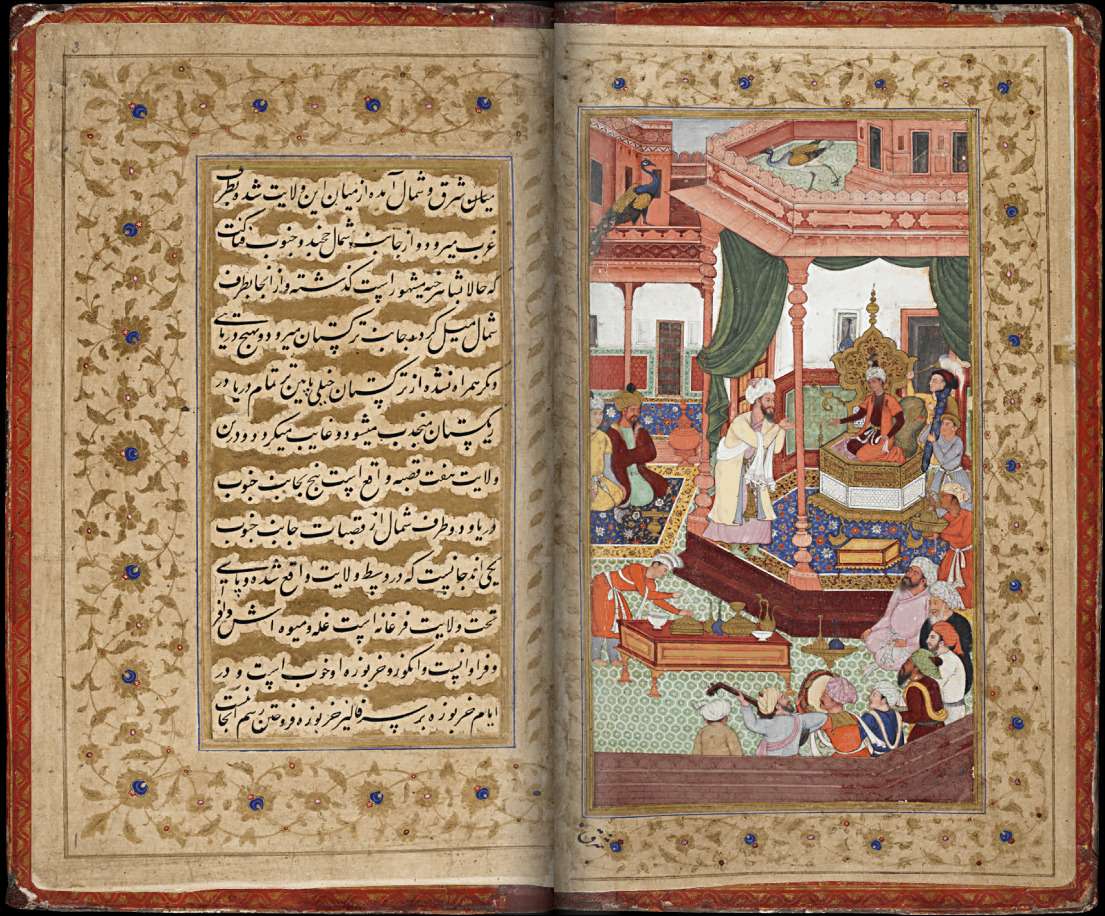 میان شرق و شمال آمده از میان این ولایت شده بطرف
غرب میرود و از جانب شمال خجند و جنوب فناکت
که حالا بشاهرخیه مشهور است گذشته و از انجا بطرف
شمال میل کرده بجانب ترکستان میرود و بهیچ دریای
دیگر همراه نشده از ترکستان خیلی پایین تر تمام دریا در
ریکستان منجذب میشود و غایب میگردد و درین
ولایت هفت قصبه واقع است پنج بجانب جنوب
دریا و دو طرف شمال از قصبات جانب جنوب
یکی اندجانست که در وسط ولایت واقع شده و پای
تخت ولایت فرغانه است غله و میوه اش وافر
و فراوانست و انگور و خربوزه او خوب است و در
ایام خربوزه بر سر فالیز خربوزه فروختن رسم آنجا نیست
3